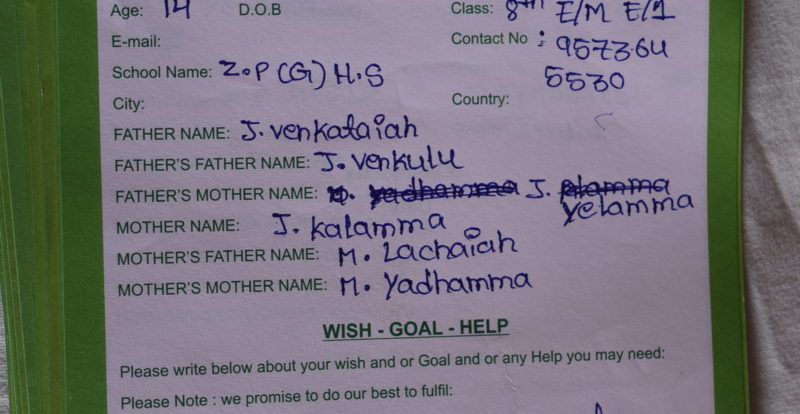 Age: 14 D.O.B Class: 8th E/M E/1
E-mail: Contact No : 957364
School Name: Z.P (G) H.S 5530
City: Country:
FATHER NAME: J. venkataiah
FATHER'S FATHER NAME: J. venkulu
FATHER'S MOTHER NAME: yadhamma J. plamma
yelamma
MOTHER NAME: J. kalamma
MOTHER'S FATHER NAME: M. Lachaiah
MOTHER'S MOTHER NAME: M. yadhamma
WISH - GOAL - HELP
Please write below about your wish and or Goal and or any Help you may need:
Please Note : we promise to do our best to fulfil: